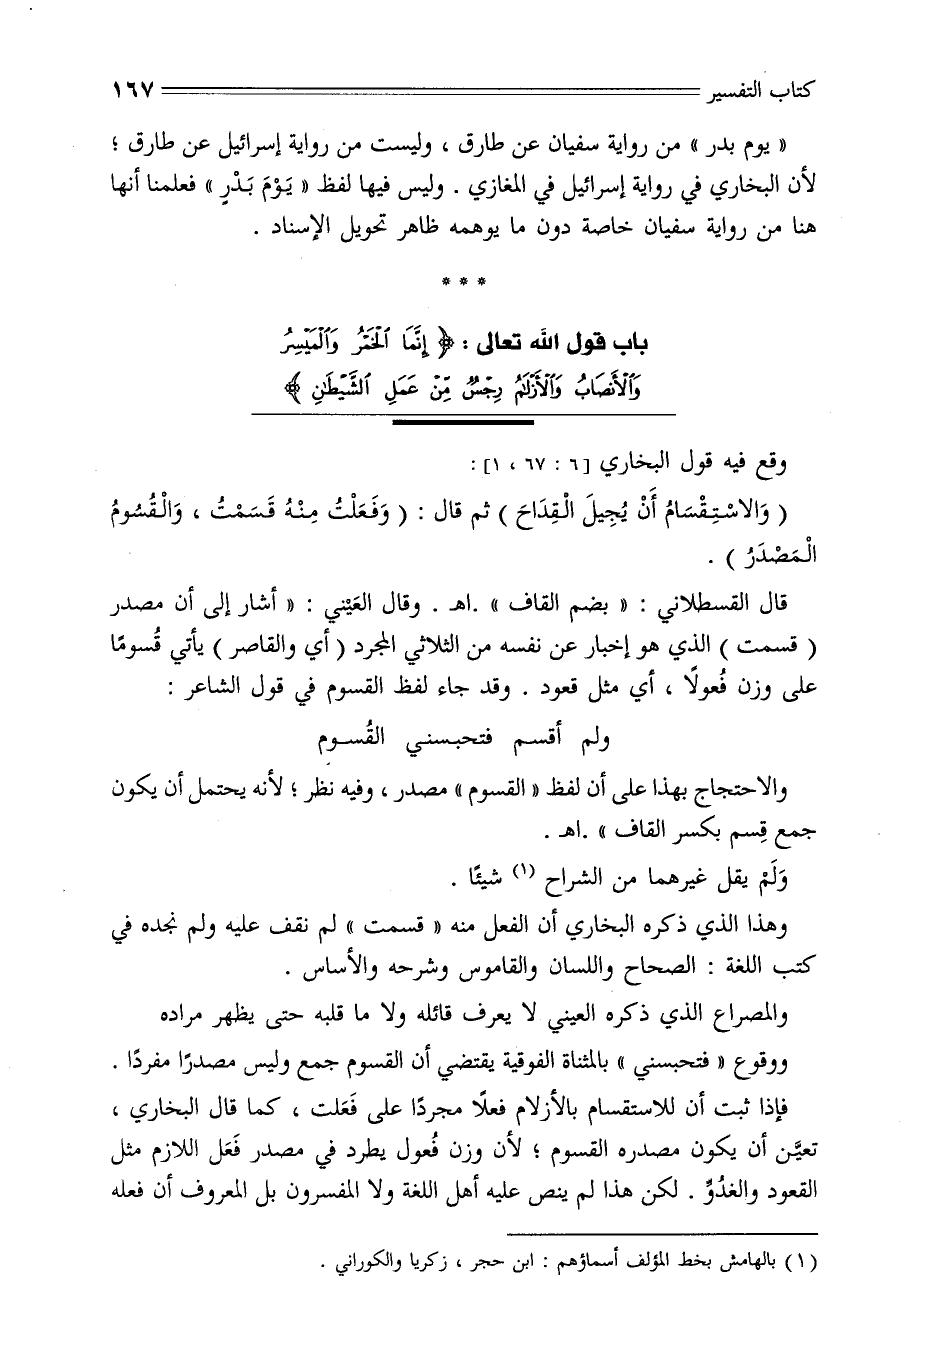 كتاب التفسير ١٦٧
« يوم بدر » من رواية سفيان عن طارق ، وليست من رواية إسرائيل عن طارق ؛
لأن البخاري في رواية إسرائيل في المغازي . وليس فيها لفظ « يَوْمَ بَدْرٍ » فعلمنا أنها
هنا من رواية سفيان خاصة دون ما يوهمه ظاهر تحويل الإسناد .
* * *
باب قول الله تعالى : ﴿ إِنَّمَا الْخَمْرُ وَالْمَيْسِرُ
وَالْأَنصَابُ وَالْأَزْلَامُ رِجْسٌ مِّنْ عَمَلِ الشَّيْطَانِ ﴾
وقع فيه قول البخاري [ ٦ : ٦٧ ، ١ ] :
( وَالاسْتِقْسَامُ أَنْ يُجِيلَ الْقِدَاحَ ) ثم قال : ( وَفَعَلْتُ مِنْهُ قَسَمْتُ ، وَالْقُسُومُ
الْمَصْدَرُ ) .
قال القسطلاني : « بضم القاف » .اهـ . وقال العَيْني : « أشار إلى أن مصدر
( قسمت ) الذي هو إخبار عن نفسه من الثلاثي المجرد ( أي والقاصر ) يأتي قُسومًا
على وزن فُعولًا ، أي مثل قعود . وقد جاء لفظ القسوم في قول الشاعر :
ولم أقسم فتحبسني القُسوم
والاحتجاج بهذا على أن لفظ « القسوم » مصدر ، وفيه نظر ؛ لأنه يحتمل أن يكون
جمع قِسم بكسر القاف » .اهـ .
وَلَمْ يقل غيرهما من الشراح (١) شيئًا .
وهذا الذي ذكره البخاري أن الفعل منه « قسمت » لم نقف عليه ولم نجده في
كتب اللغة : الصحاح واللسان والقاموس وشرحه والأساس .
والمصراع الذي ذكره العيني لا يعرف قائله ولا ما قلبه حتى يظهر مراده
ووقوع « فتحبسني » بالمثناة الفوقية يقتضي أن القسوم جمع وليس مصدرًا مفردًا .
فإذا ثبت أن للاستقسام بالأزلام فعلًا مجردًا على فَعَلت ، كما قال البخاري ،
تعيَّن أن يكون مصدره القسوم ؛ لأن وزن فُعول يطرد في مصدر فَعَل اللازم مثل
القعود والغدُوِّ . لكن هذا لم ينص عليه أهل اللغة ولا المفسرون بل المعروف أن فعله
(١) بالهامش بخط المؤلف أسماؤهم : ابن حجر ، زكريا والكوراني .